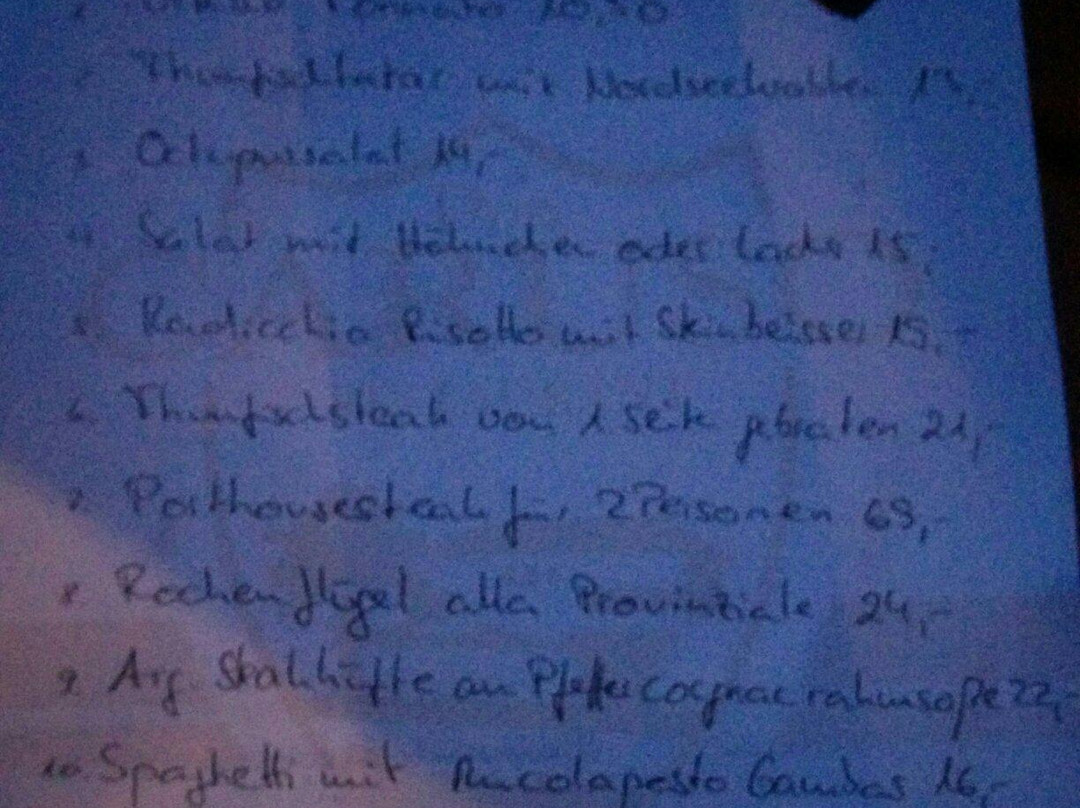 10,50
Thunfischtatar mit Nordseekrabben 13,-
3 Octupussalat 14,-
4 Salat mit Hähnchen oder Lachs 15,
5. Radicchio Risotto mit 15,-
6 Thunfischsteak von 1 Seite gebraten 21,-
7. Porthousesteak für 2 Personen 69,-
8 Rochenflügel alla Provinziale 24,-
9. Arg. Steakhüfte an Pfeffercognacrahmsoße 22,-
10. Spaghetti mit Rucolapesto Gambas 16,-